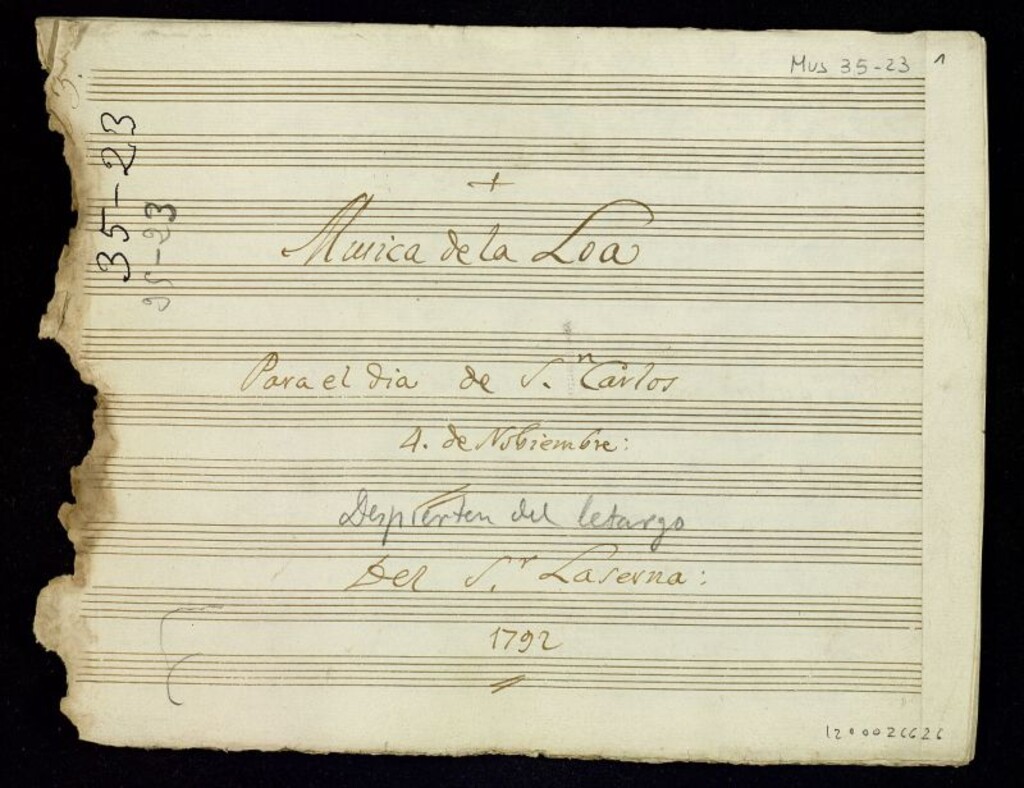 Mus 35-23 1
35-23
35-23
+
Musica de la Loa
Para el dia de S.n Carlos
4. de Nobiembre:
Despierten del letargo
Del S.r Laserna:
1792
1200026626